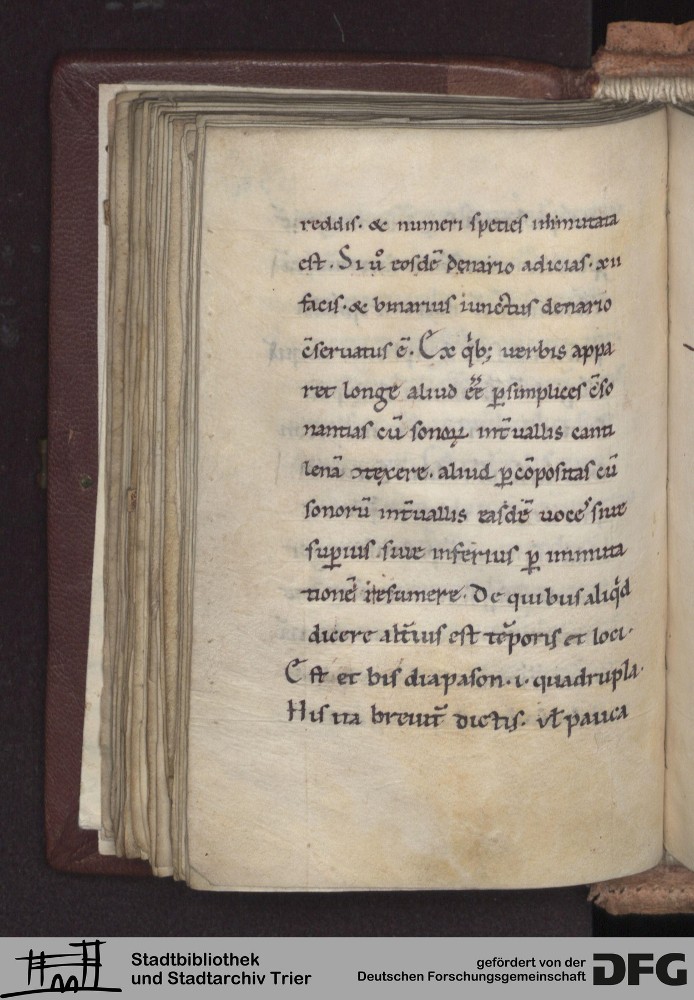 reddis. & numeri species inmutata
est. Si ů eosdē denario adicias. xii
facis. & binarius iunctus denario
c̄seruatus ē. Ex qͥb; uerbis appa
ret longe aliud eē̄ ꝑ simplices c̄so
nantias cū sonoꝝ int̄uallis canti
lenā ↄtexere. aliud ꝑ cōpositas cū
sonorū int̄uallis easdē uoceˢ siue
suꝑius siue inferius ꝑ inmuta
tionē resumere. De quibus aliqͥd
dicere alt̄ius est tēporis et loci.
Est et bis diapason .i. quadrupla.
His ita breuit̄ dictis. ul̄ pauca
Stadtbibliothek
und Stadtarchiv Trier
gefördert von der
Deutschen Forschungsgemeinschaft
DFG